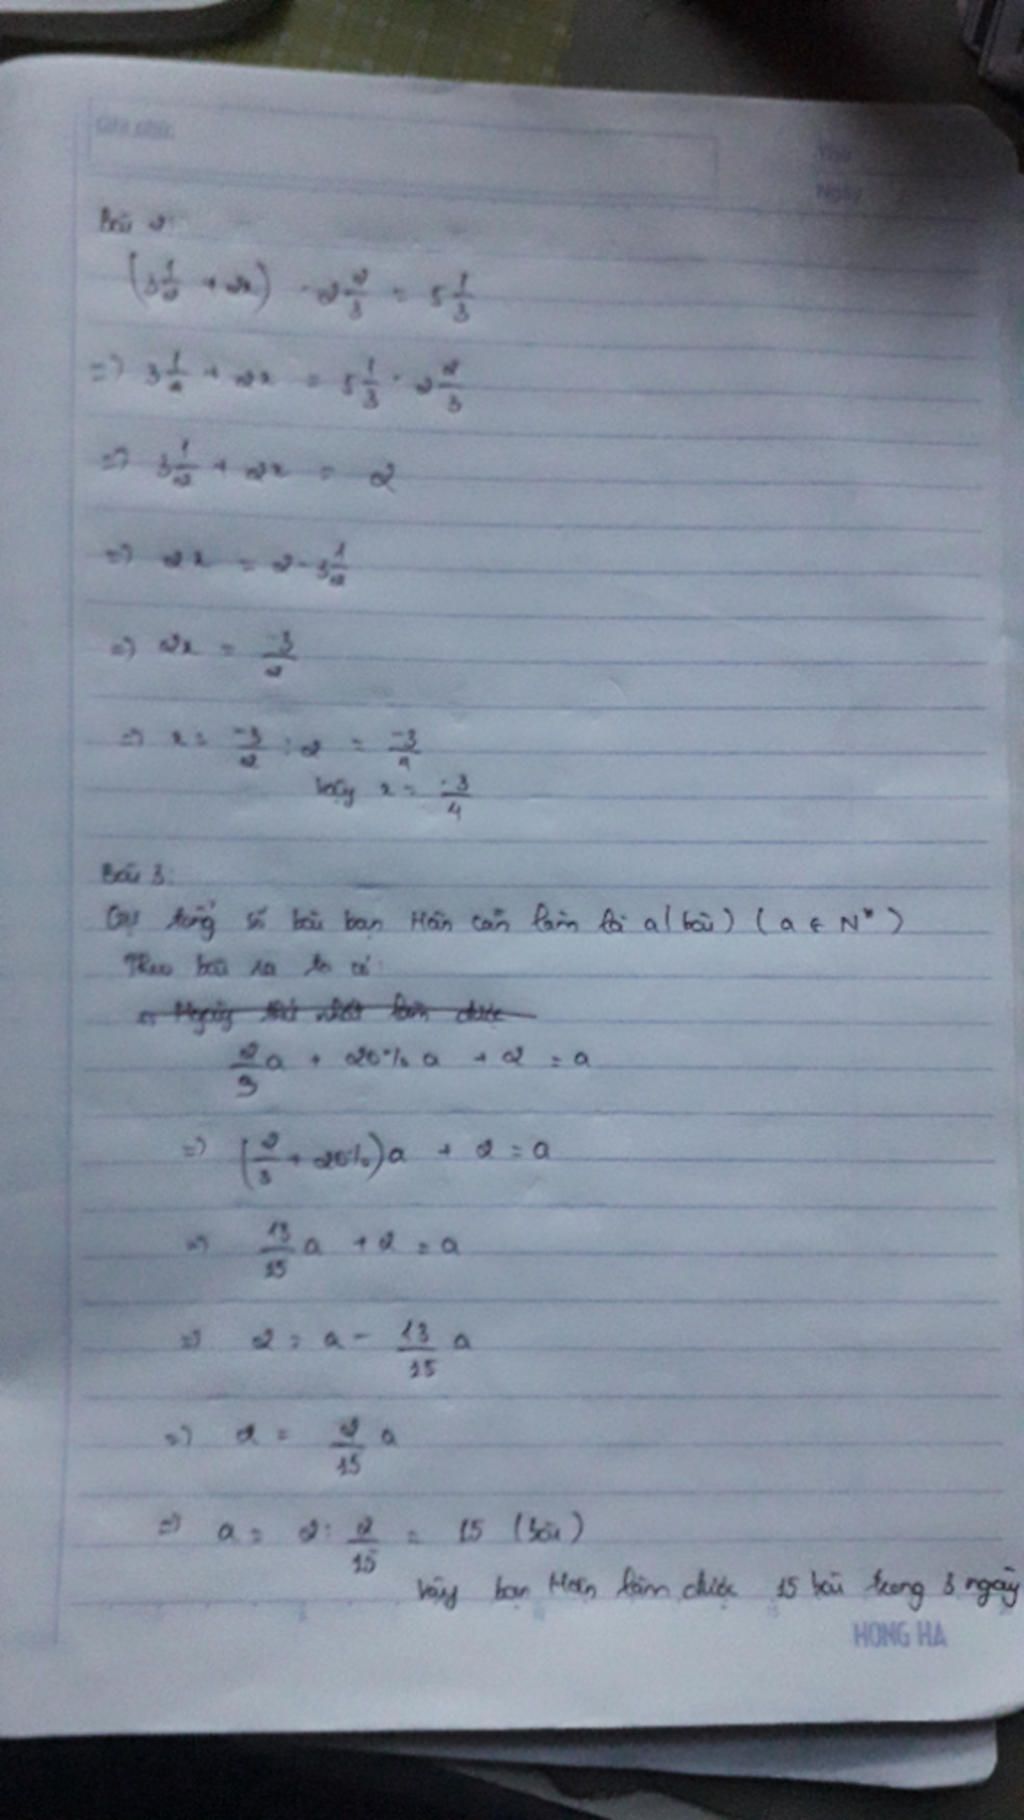 Ghi chú:
Thứ
Ngày
Bài 2:
(3 1/2 + 2x) · 2 2/3 = 5 1/3
=> 3 1/2 + 2x = 5 1/3 : 2 2/3
=> 3 1/2 + 2x = 2
=> 2x = 2 - 3 1/2
=> 2x = -3/2
=> x = -3/2 : 2 = -3/4
Vậy x = -3/4
Bài 3:
Gọi tổng số bài bạn Hân cần làm là a (bài) (a ∈ N*)
Theo bài ra ta có:
Ngày thứ nhất làm được
2/3 a + 20% a + 2 = a
=> (2/3 + 20%) a + 2 = a
=> 13/15 a + 2 = a
=> 2 = a - 13/15 a
=> 2 = 2/15 a
=> a = 2 : 2/15 = 15 (bài)
Vậy bạn Hân làm được 15 bài trong 3 ngày
HONG HA